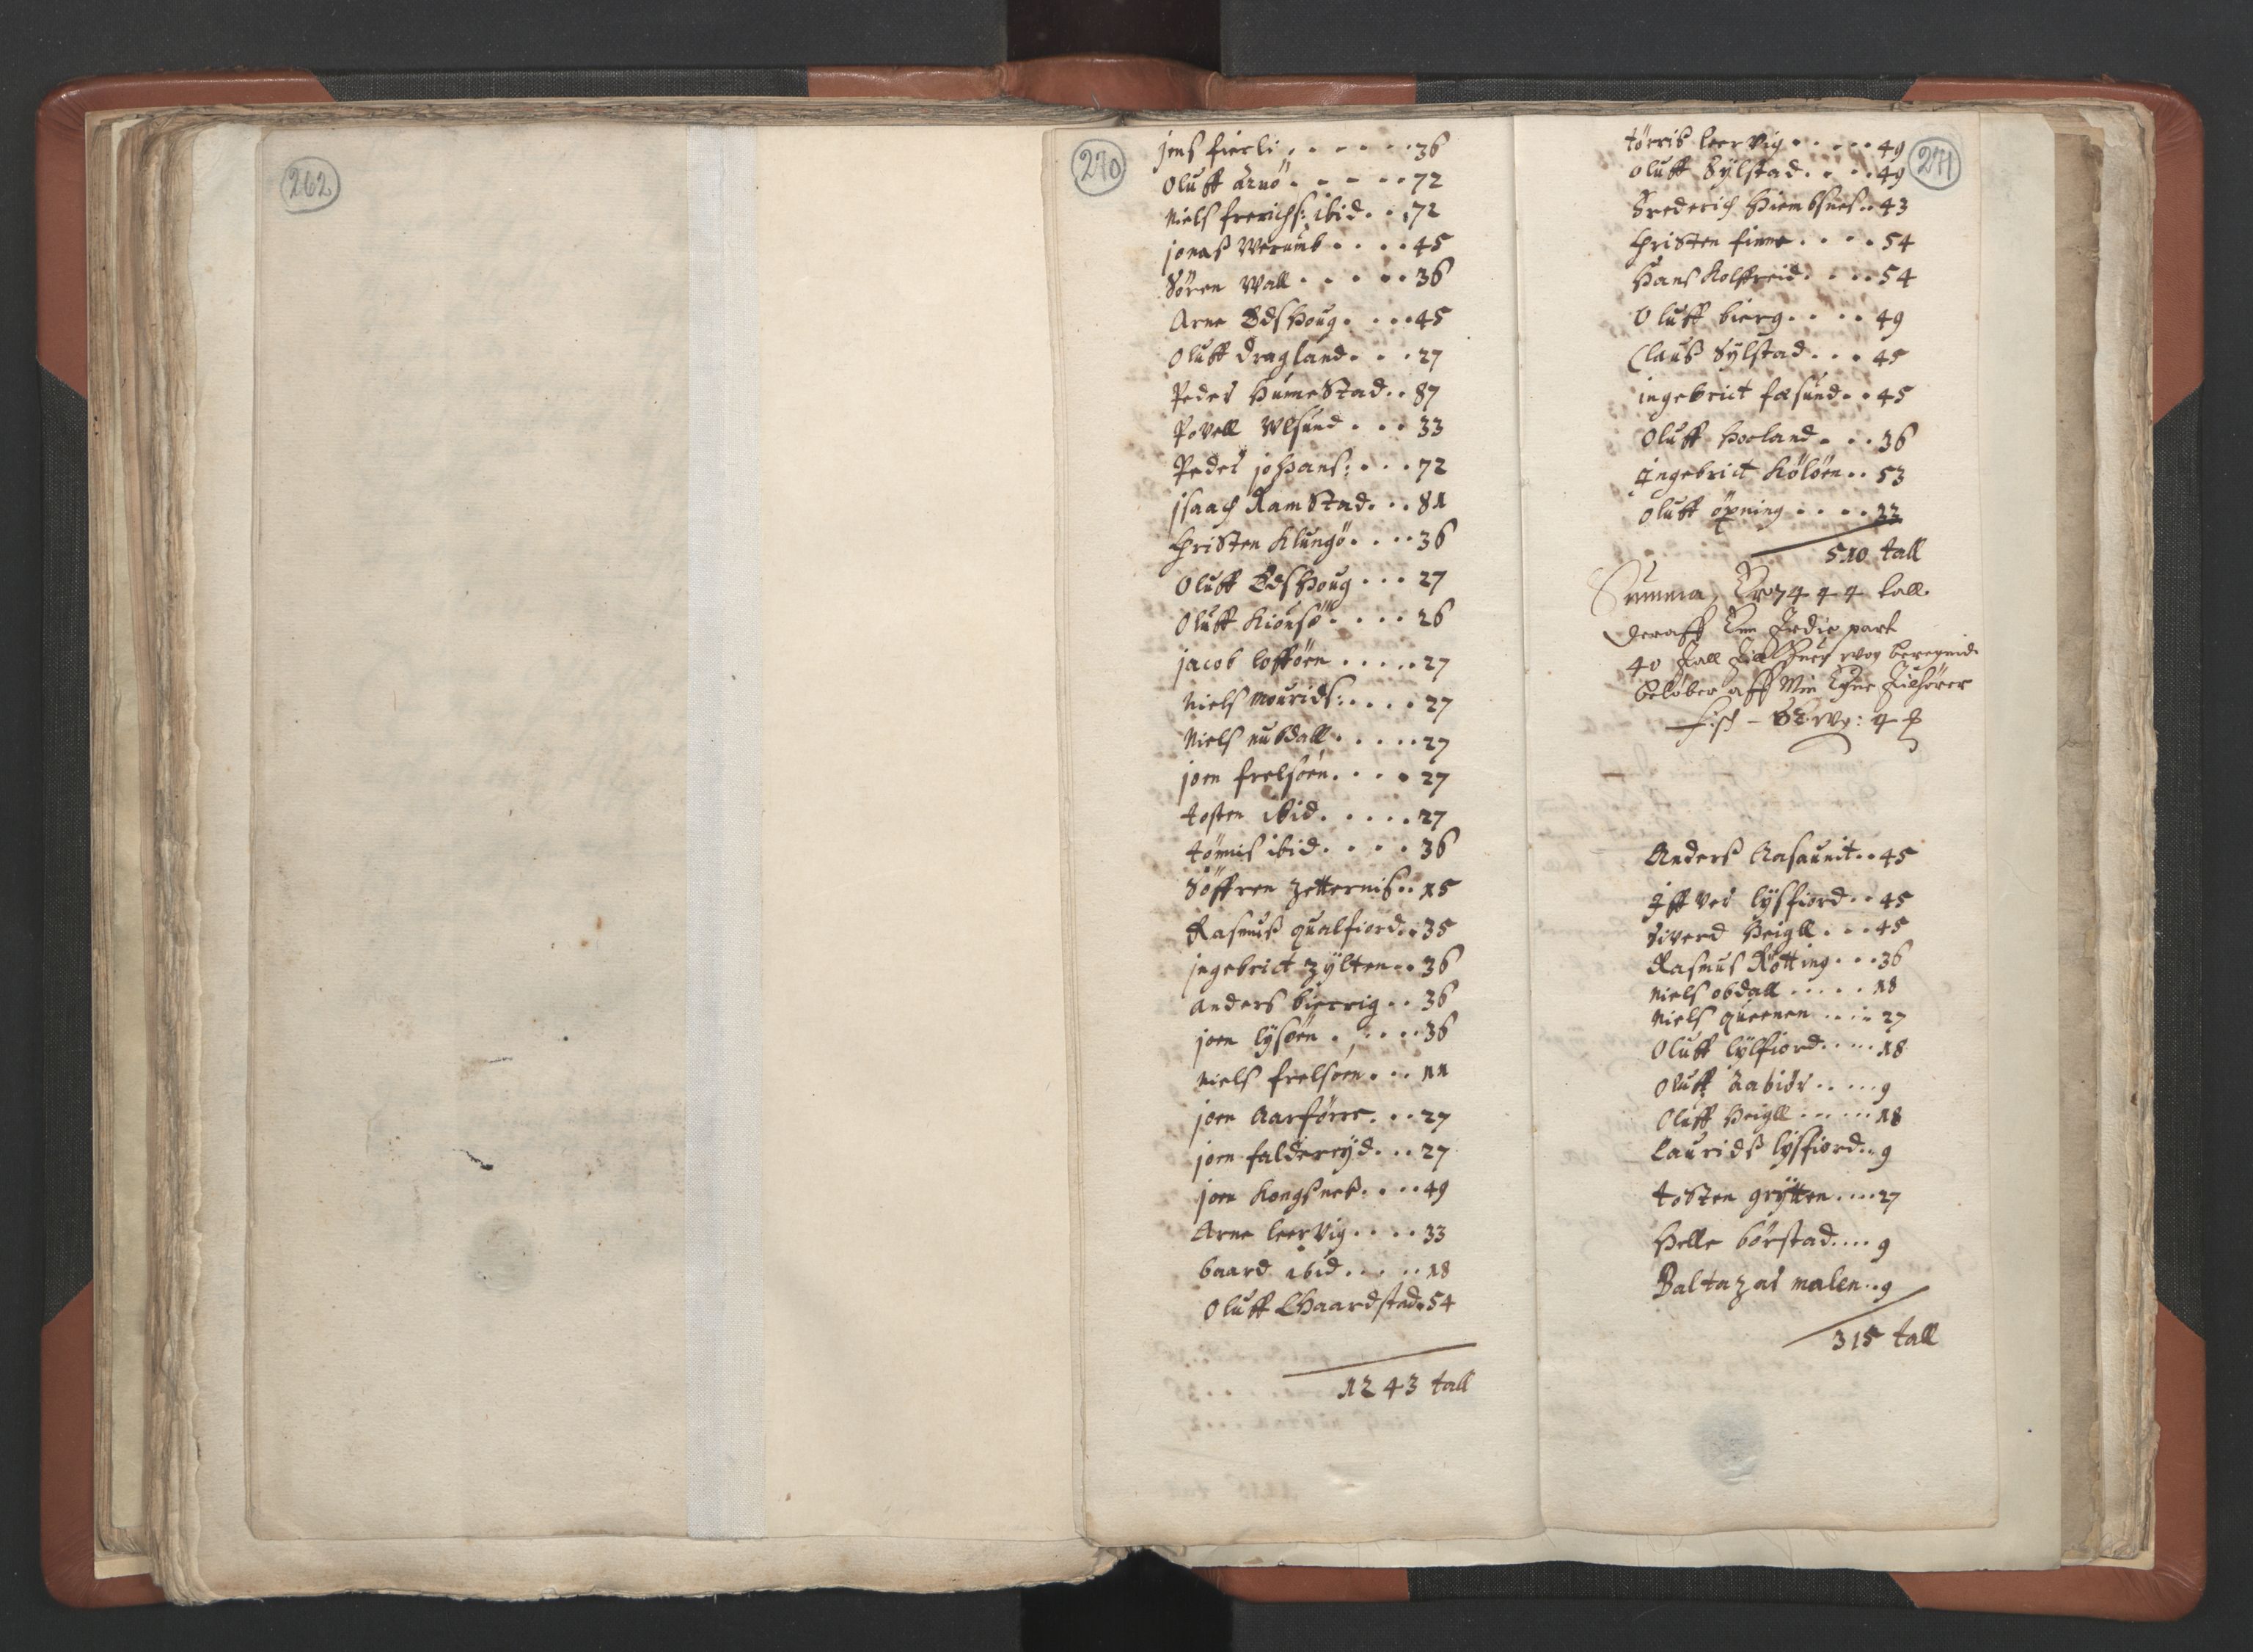 262
270
jens fierli . . . . . . 36
Oluff Arnö . . . . . 72
Niels frerichs: ibid . . 72
jonaß Werumb . . . . 45
Sören Wall . . . . . 36
Arne Edshoug . . . . 45
Oluff dragland . . . 27
Peder HumeStad . . 87
Povell Wlsund . . . 33
Peder johans: . . . 72
jsaach RamStad . . . 81
ChriSten Klungö . . . . 36
Oluff Edshoug . . . 27
Oluff Kionsö . . . . 26
jacob lofföen . . . . . 27
Niels mourids: . . . . 27
Niels nubdall . . . . . 27
joen frelsöen . . . . 27
tosten ibid . . . . . 27
tönnis ibid . . . . 36
Söffren zetternis . . 15
Rasmuß qualfiord . . 35
jngebrict zÿlten . . 36
anders bierrig . . 36
joen lysöen . . . . . 36
Niels frelsöen . . . 11
joen Aarförre . . . 27
joen faldereÿd . . . 27
joen Kongsnes . . . . 49
Arne leervig . . . . 33
baard ibid . . . . . 18
Oluff Ehaardstad . 54
1243 tall
271
törris leervig . . . . . 49
oluff Sÿlstad . . . . 49
Frederich Hiembsnes . . 43
ChriSten finne . . . . 54
Hans Kolffreid . . . . 54
Oluff bierg . . . . 49
Clauß Sÿlstad . . . 45
ingebrict fæsund . . 45
Oluff Hoeland . . . 36
Ingebrict Kölöen . . 53
Oluff öpning . . . . 33
510 tall
Summa 7444 tall.
deraff Tredie part
40 tall till huer wog beregnid.
beløber aff Min tilhörer
fisch - 62 wg: 4
Anders Aasaunit . . 45
Iffver lÿsfiord . . 45
Siverd Heigll . . . 45
Rasmus Rötting . . . 36
Niels obdall . . . . . 18
Niels queenen . . . . 27
Oluff lÿlfiord . . . . . 18
Oluff Aabiör . . . . . 9
Oluff Heigll . . . . . . 18
Lauridß lÿsfiord . . 9
toSten grÿtten . . . . 27
Helle börstad . . . . 9
Baltazar malen . . 9
315 tall